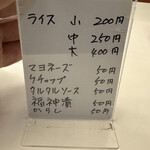 ライス 小 200円
中 250円
大 400円
マヨネーズ 50円
ケチャップ 50円
タルタルソース 50円
福神漬 50円
からし 50円